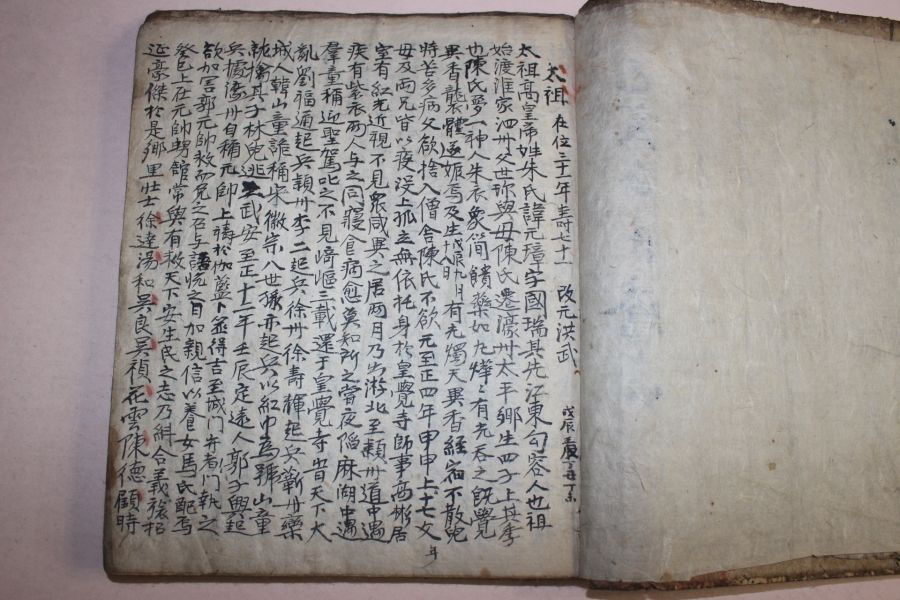 太祖 在位三十一年壽七十一 改元洪武 戊辰
太祖高皇帝姓朱氏諱元璋字國瑞其先江東勾容人也祖
始渡淮家泗卅父世珎與母陳氏遷濠卅太平鄉生四子上其季
也陳氏夢一神人朱衣象簡饋藥如丸燁〻有光吞之旣覺
異香襲體遂娠焉及生戊辰九月 日有光燭天異香經宿不散兒
時苦多病父欲捨入僧舍陳氏不欲元至正四年甲申上十七父
母及兩兄皆以疫沒上孤立無依托身於皇覺寺師事高彬居
室有紅光近視不見衆咸異之居兩月乃出游北至穎卅道中遇
疾有紫衣兩人与之同寢食病愈莫知所之嘗夜陷麻湖中遇
羣童稱迎聖駕叱之不見﨑嶇三載還于皇覺寺时天下大
亂劉福通起兵穎卅李二起兵徐卅徐壽輝起兵蘄卅欒
城人韓山童詭稱宋徽宗八世孫亦起兵以紅巾為號山童
就擒其子林兒逃之武安至正十二年壬辰定遠人郭子興起
兵據濠卅自稱元帥上禱於伽藍卜丞得吉至城門弁者門執之
欲加害郭元帥救而免之召与語悅之日加親信以養女馬氏配焉
癸巳上在元帥甥館常與有救天下安生民之志乃紏合義旅招
延豪傑於是鄉里壯士徐達湯和吳良吳禎花雲陳德顧時